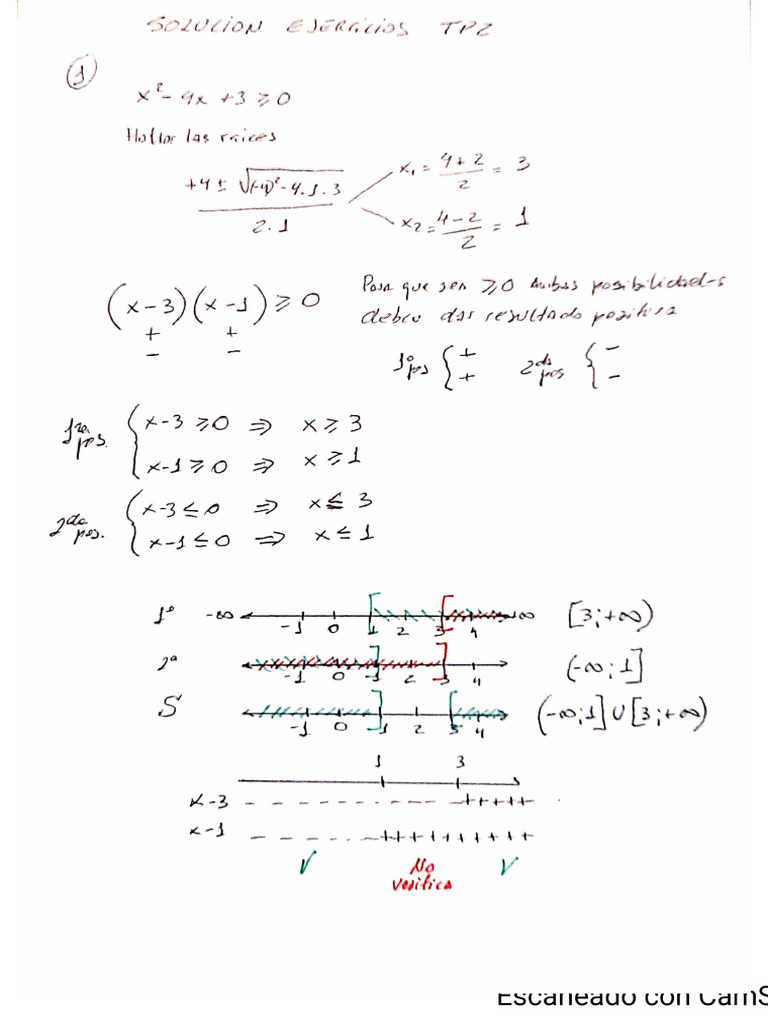 SOLUCION EJERCICIOS TP2
1
x² - 4x + 3 ≥ 0
Hallar las raices
+4 ± √(-4)² - 4.1.3 / 2.1
x₁ = 4+2 / 2 = 3
x₂ = 4-2 / 2 = 1
(x-3)(x-1) ≥ 0
+ +
- -
Para que sea ≥0 Ambas posibilidades
deben dar resultado positivo
1º pos { + +
2da pos { - -
1ra pos. { x-3 ≥ 0 ⇒ x ≥ 3
x-1 ≥ 0 ⇒ x ≥ 1
2da pos. { x-3 ≤ 0 ⇒ x ≤ 3
x-1 ≤ 0 ⇒ x ≤ 1
1º -∞ -1 0 1 2 3 4 ∞ [3;+∞)
2ª -1 0 1 2 3 4 (-∞;1]
S -1 0 1 2 3 4 (-∞;1] U [3;+∞)
1 3
x-3 - - - - - - - - - - - + + + + +
x-1 - - - - - + + + + + + + + + +
V No V
verifica
Escaneado con CamS